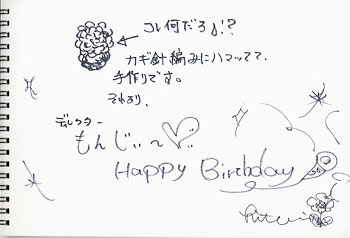 コレ何だろ!?
カギ針編みにハマってて、
手作りです。
それより、
ディレクター
もんじぃ〜♡
HAPPY Birthday